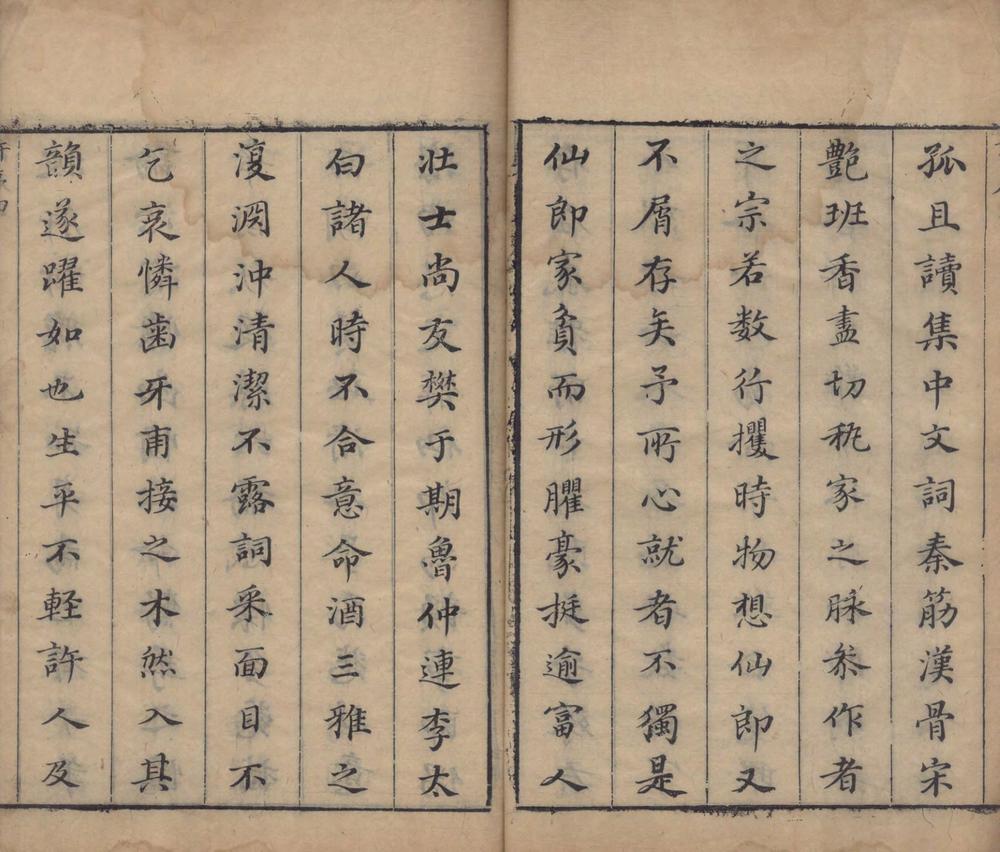 孤且讀集中文詞秦筋漢骨宋
艷班香盡切秇家之脉叅作者
之宗若数行攫時物想仙郎又
不屑存矣予所心就者不獨是
仙郎家貧而形臞豪挺逾富人
壮士尚友樊于期魯仲連李太
白諸人時不合意命酒三雅之
後泂沖清潔不露詞采面目不
乞哀憐齒牙甫接之木然入其
韻遂躍如也生平不軽許人及